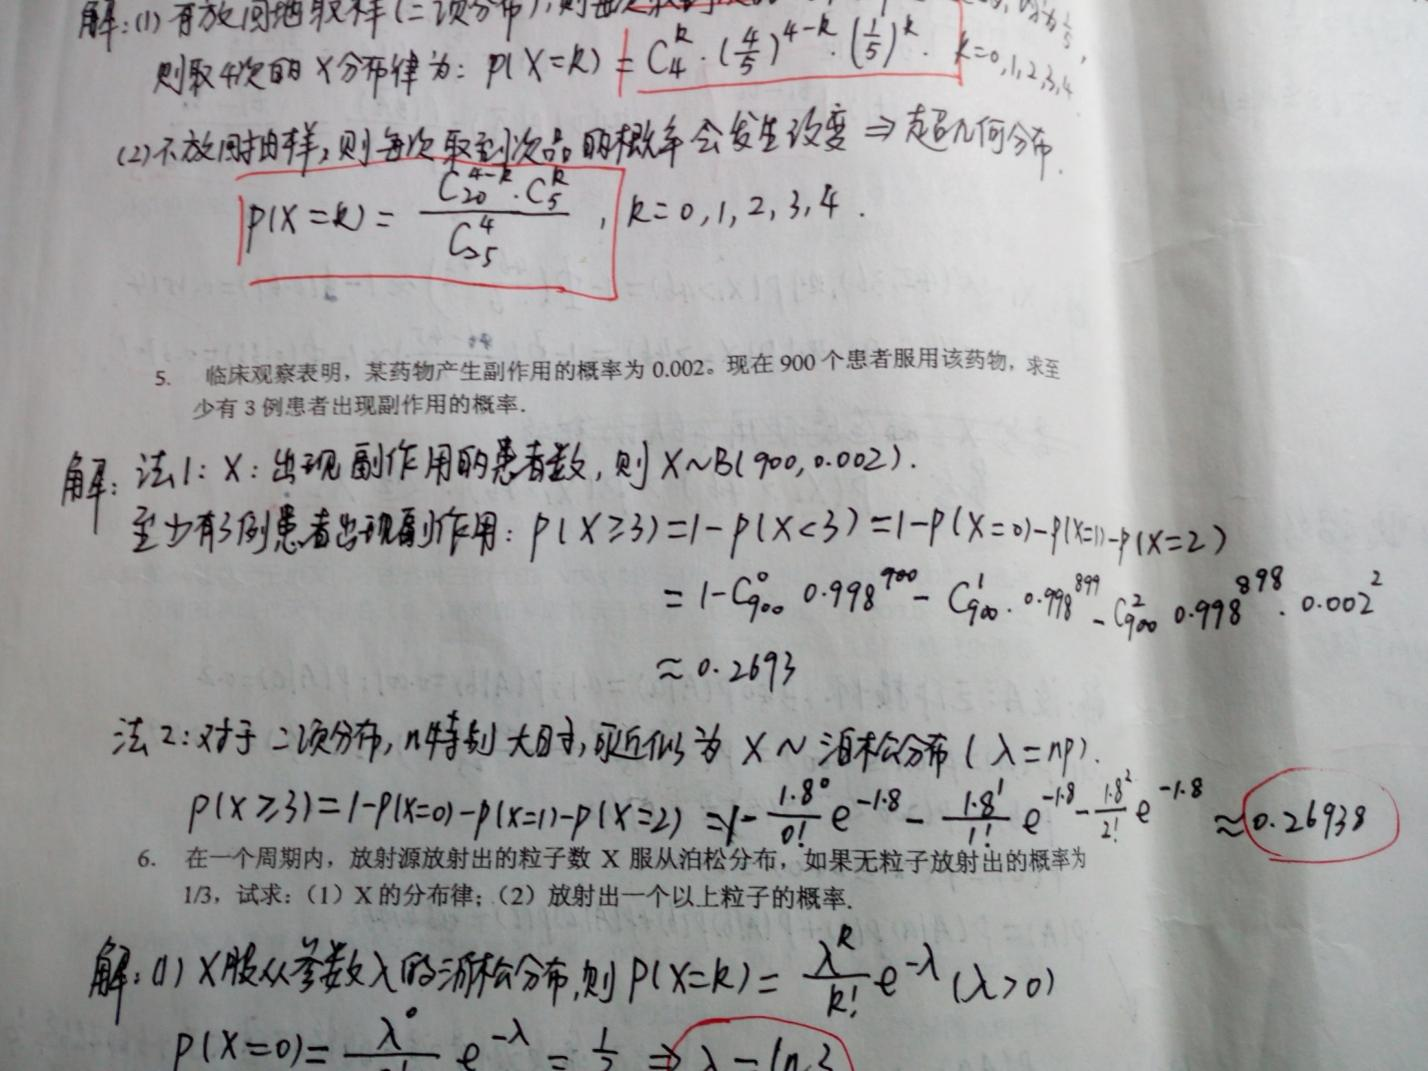 解:(1) 有放回地取样(二项分布),则每次取
则取4次的X分布律为: P(X=k) = C₄ᵏ·(4/5)⁴⁻ᵏ·(1/5)ᵏ. k=0,1,2,3,4
(2)不放回抽样,则每次取到次品的概率会发生改变 ⇒ 超几何分布.
P(X=k) = C₂₀⁴⁻ᵏ·C₅ᵏ / C₂₅⁴ , k=0,1,2,3,4.
5. 临床观察表明,某药物产生副作用的概率为 0.002。现在 900 个患者服用该药物,求至
少有 3 例患者出现副作用的概率.
解: 法1: X: 出现副作用的患者数,则 X~B(900,0.002).
至少有3例患者出现副作用: P(X≥3)=1-P(X<3)=1-P(X=0)-P(X=1)-P(X=2)
= 1-C₉₀₀⁰ 0.998⁹⁰⁰ - C₉₀₀¹·0.998⁸⁹⁹ - C₉₀₀² 0.998⁸⁹⁸·0.002²
≈ 0.2693
法2: 对于二项分布,n特别大时,可近似为 X~泊松分布(λ=np).
P(X≥3)=1-P(X=0)-P(X=1)-P(X=2) =1- 1.8⁰/0! e⁻¹·⁸ - 1.8¹/1! e⁻¹·⁸ - 1.8²/2! e⁻¹·⁸ ≈ 0.26938
6. 在一个周期内,放射源放射出的粒子数 X 服从泊松分布,如果无粒子放射出的概率为
1/3,试求:(1)X 的分布律;(2)放射出一个以上粒子的概率.
解:(1) X服从参数λ的泊松分布,则 P(X=k) = λᵏ/k! e^-λ (λ>0)
P(X=0)= λ⁰/0! e^-λ = 1/3 ⇒ λ=ln3